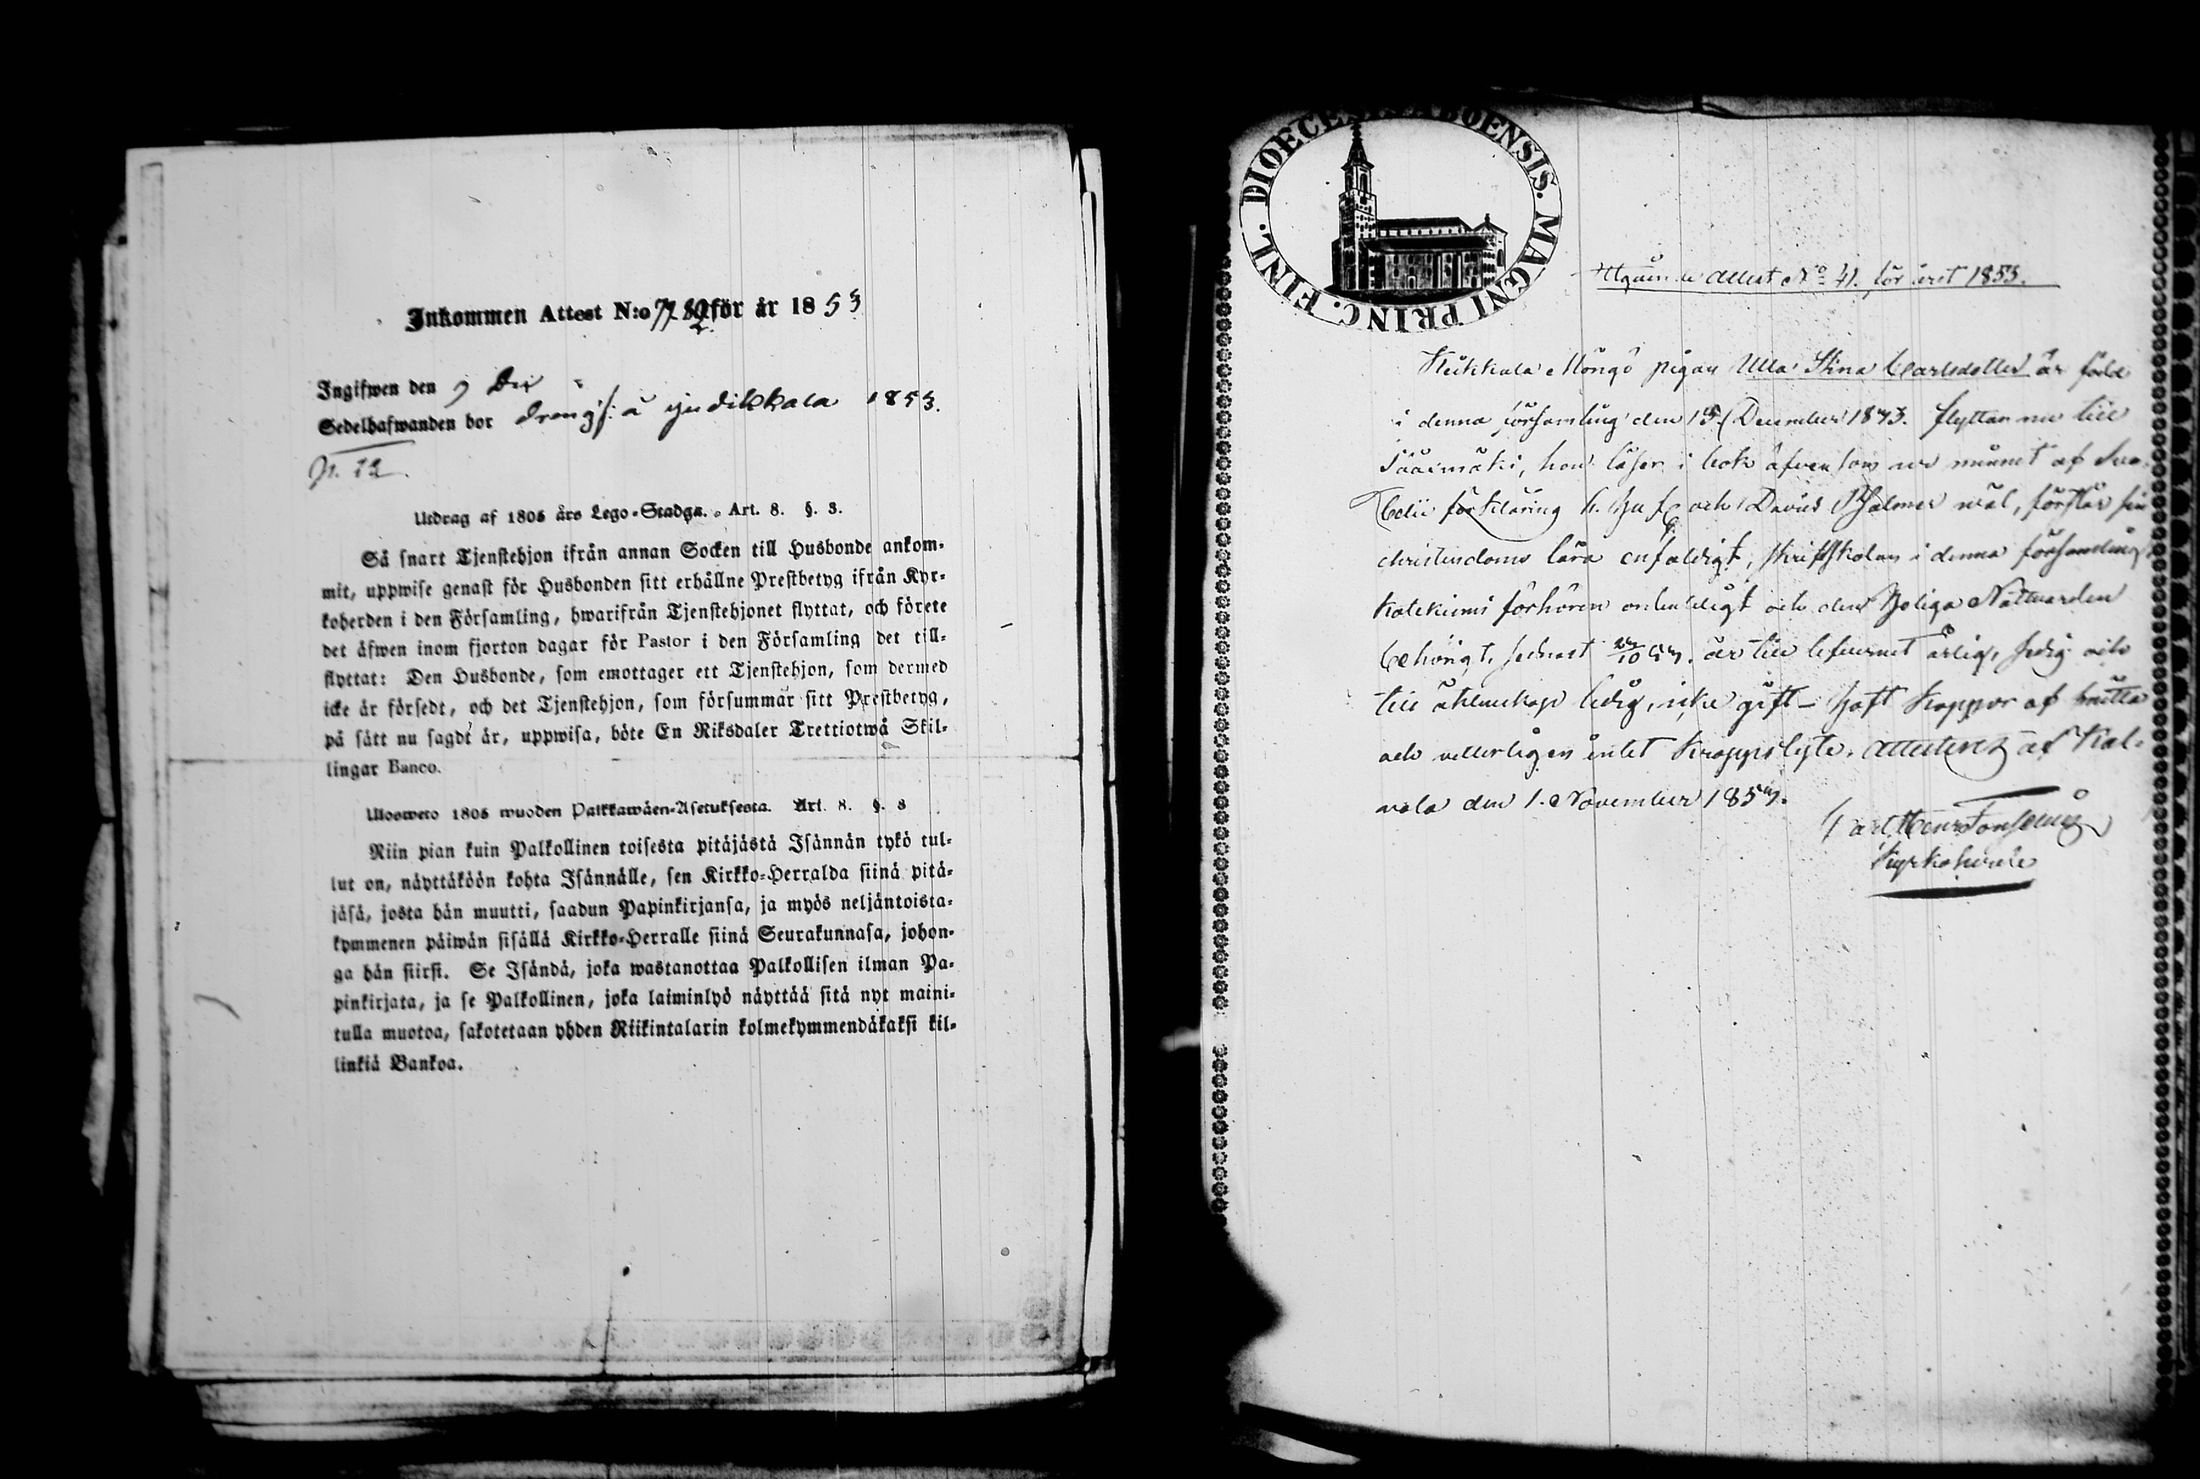 Inkommen Attest N:o 782 för år 1853
Ingifwen den 9 Dec
Sedelhafwanden bor Dräng f: å Judikkala 1853.
p. 22.
Utdrag af 1805 års Lego-Stadga. Art. 8. §. 3.
Så snart Tjenstehjon ifrån annan Socken till Husbonde ankom-
mit, uppwise genast för Husbonden sitt erhållne Prestbetyg ifrån Kyr-
koherden i den Församling, hwarifrån Tjenstehjonet flyttat, och förete
det äfwen inom fjorton dagar för Pastor i den Församling det till-
flyttat: Den Husbonde, som emottager ett Tjenstehjon, som dermed
icke är försedt, och det Tjenstehjon, som försummar sitt Prestbetyg,
på sätt nu sagdt är, uppwisa, böte En Riksdaler Trettiotwå Skil-
lingar Banco.
Ulosweto 1805 wuoden Palkkawäen-Asetuksesta. Art. 8. §. 3
Niin pian kuin Palkollinen toisesta pitäjästä Isännän tykö tul-
lut on, näyttäköön kohta Isännälle, sen Kirkko-Herralda siinä pitä-
jäsä, josta hän muutti, saadun Papinkirjansa, ja myös neljäntoista-
kymmenen päiwän sisällä Kirkko-Herralle siinä Seurakunnasa, johon-
ga hän siirsi. Se Isändä, joka wastanottaa Palkollisen ilman Pa-
pinkirjata, ja se Palkollinen, joka laiminlyö näyttää sitä nyt maini-
tulla muotoa, sakotetaan yhden Riikintalarin kolmekymmendäkaksi kil-
linkiä Bankoa.
FINL. DIOECESIS ABOENSIS. MAGNI PRINC.
Utgående Attest No 41. för året 1853.
Heikkala Mongo pigan Ulla Stina Carlsdotter är född
i denna församling den 15 December 1833. flyttar nu till
Sääxmäki, hon läser i bok äfvensom ur minnet af Sve-
belii förklaring h. huf. och Davids Psalmer wäl, förstår sin
christendoms lära enfaldigt, skriftskolan i denna församling
katekismi förhören och den Heliga Nattvarden
behörigt, sednast 23/10 53. är till lefvernet ärlig, fredig och
till äktenskap ledig, icke gift - haft koppor af smitta
och veterligen intet kroppslyte. Attesteras af Kal-
vola den 1. November 1853.
Kyrkoherde